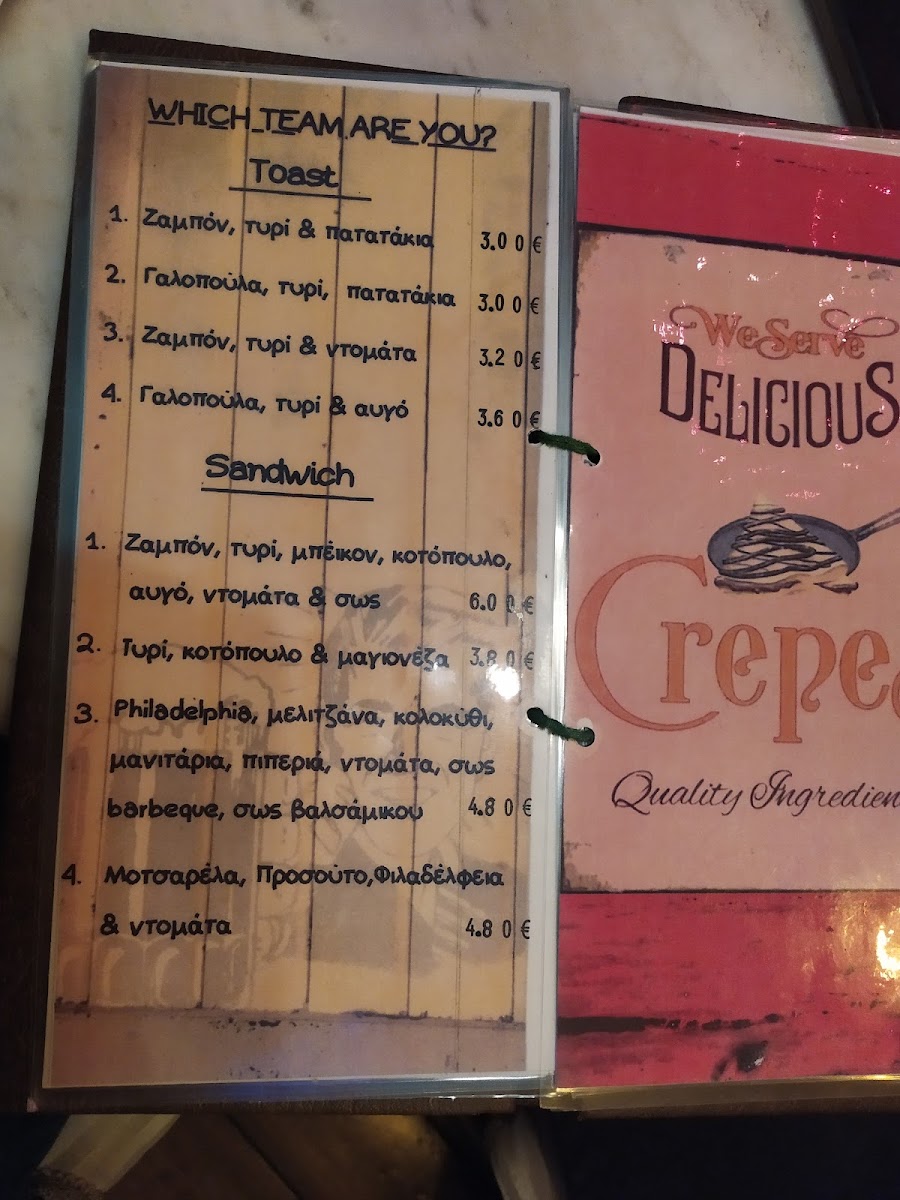 WHICH TEAM ARE YOU?
Toast
1. Ζαμπόν, τυρί & πατατάκια 3.00€
2. Γαλοπούλα, τυρί, πατατάκια 3.00€
3. Ζαμπόν, τυρί & ντομάτα 3.20€
4. Γαλοπούλα, τυρί & αυγό 3.60€
Sandwich
1. Ζαμπόν, τυρί, μπέικον, κοτόπουλο,
αυγό, ντομάτα & σως 6.00€
2. Τυρί, κοτόπουλο & μαγιονέζα 3.80€
3. Philadelphia, μελιτζάνα, κολοκύθι,
μανιτάρια, πιπεριά, ντομάτα, σως
barbeque, σως βαλσάμικου 4.80€
4. Μοτσαρέλα, Προσούτο,Φιλαδέλφεια
& ντομάτα 4.80€
We Serve
DELICIOUS
Crepe
Quality Ingredien